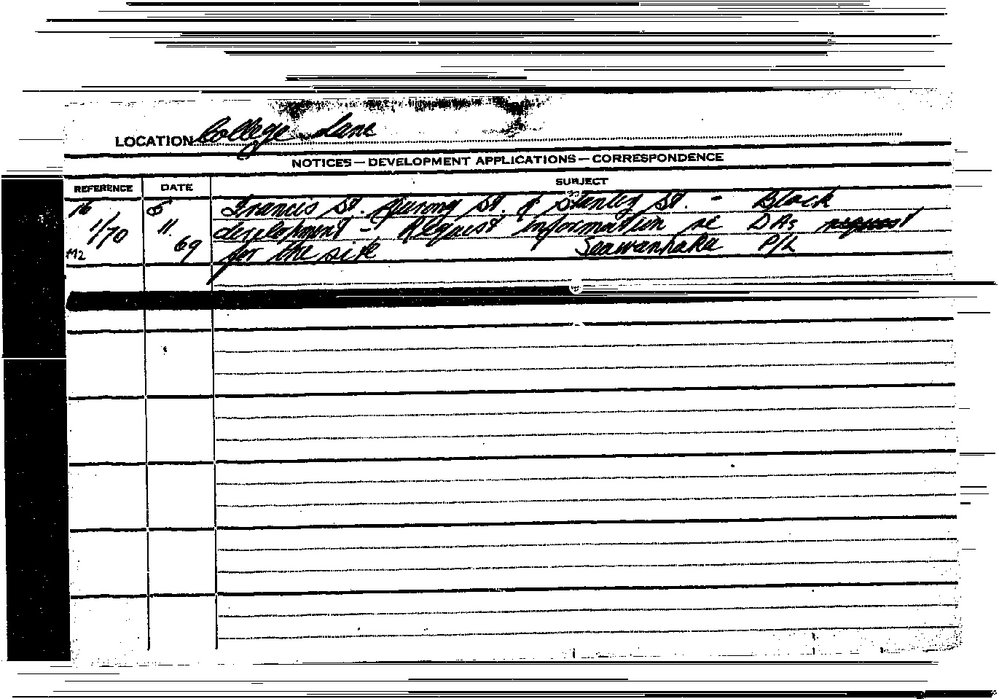 LOCATION College Lane
NOTICES — DEVELOPMENT APPLICATIONS — CORRESPONDENCE
REFERENCE DATE SUBJECT
16 5 Francis St. Yurong St & Stanley St. - Block
1/70 11. development - Request information re DAs request
M2 69 for the site Seawanhaka P/L